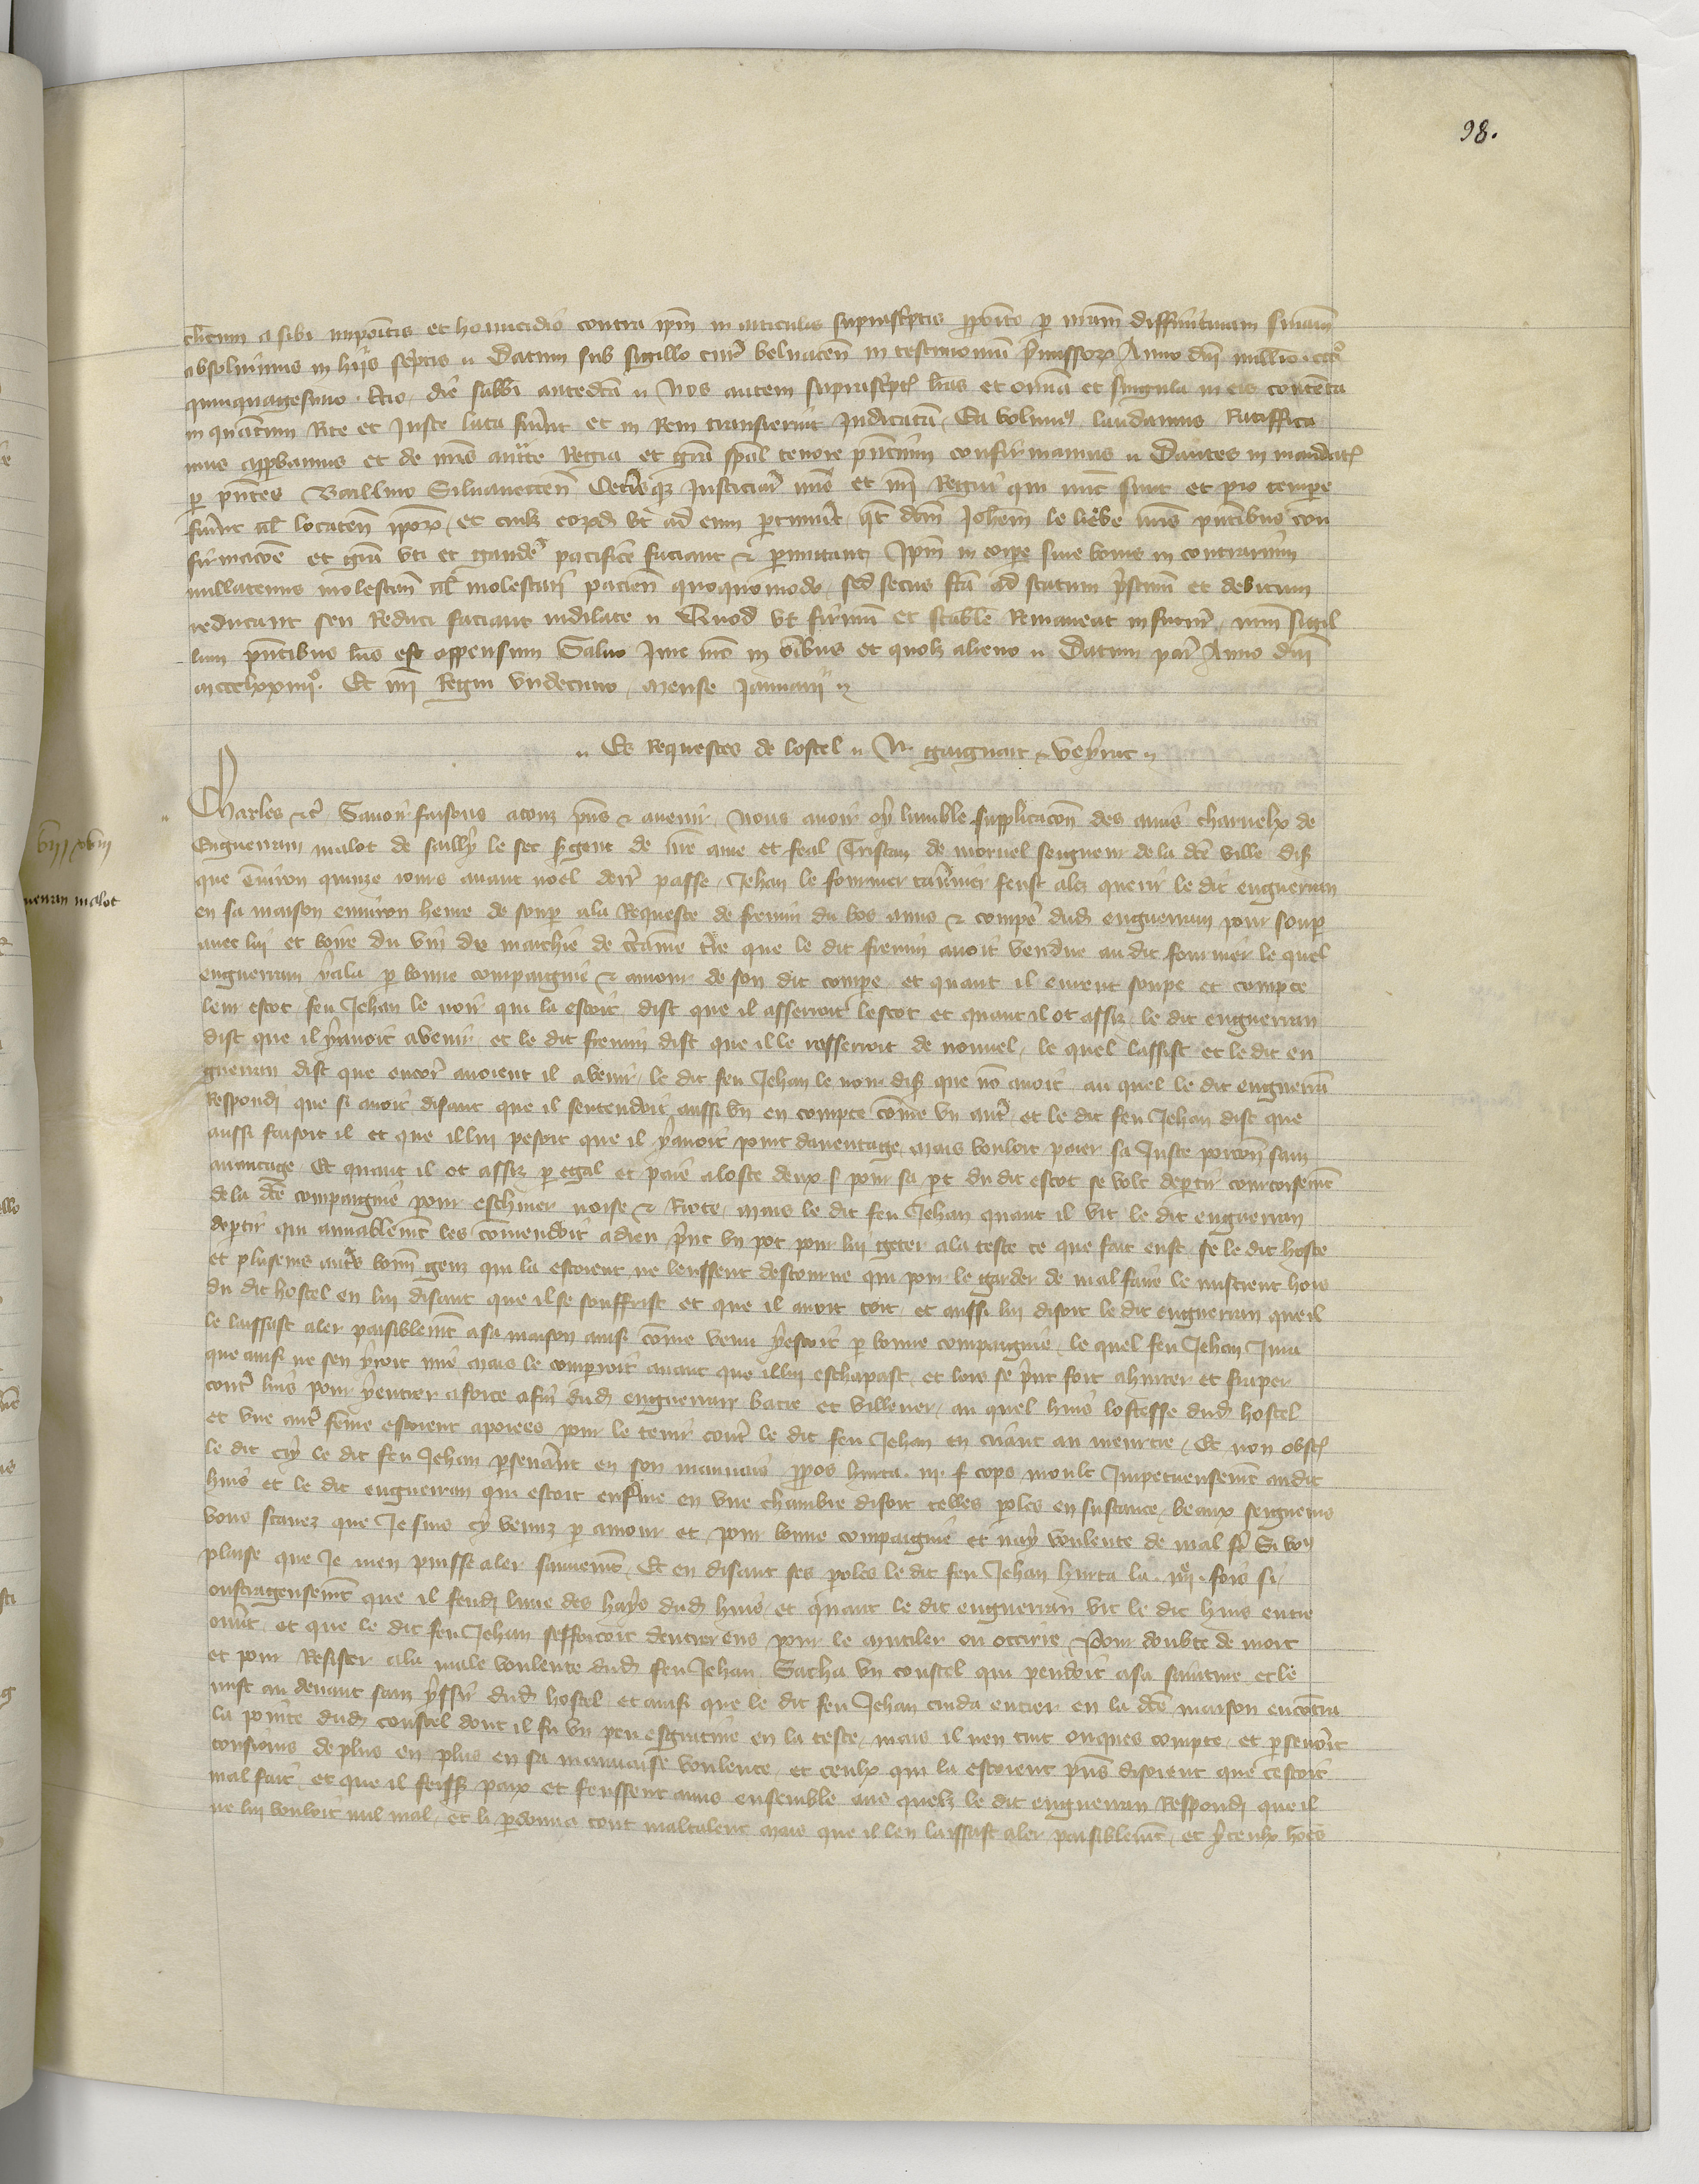 98.
cl̃icum a sibi impoĩtis et homicidio contra ip̃m in articulis suprasc̃ptis p̃poĩto p̱ nr̃am diffinitiuam sniam̃
absoluimus in hijs sc̃ptis ⁊ Datum sub sigillo cur̃ beluacen̄ in testimoniũ p̃missoꝝ Anno dñi millio ccc°
quinquagesimo die sabb̃i antedc̃a ⁊ Nos autem suprasc̃pt̃ lr̃as et om̃ia et singula in eis contenta
in quantum Rite et Juste lata sũnt et in Rem transierint Judicatã Ea volumꝰ laudamus Ratiffica
mus app̱bamus et de nr̃is auc̃te Regia et gr̃a sp̃al tenore pñtium confirmamus ⁊ Dantes in mandat̃
p̱ pñtes Baillivo Siluanecten̄ Ceteris̃qꝫ Justiciar̃ nr̃is et nr̃i Regni qui nũc sunt et pro tempe
fũint aut̃ locaten̄ ip̃oꝝ et cuilꝫ eoꝝd̃ vt ad eum p̱tinũit qt̃ dc̃m Joh̃em le lieure nr̃is pñtibus con
firmac̃oe et gr̃a vti et gaudẽ pacifice faciant ⁊ p̱mittant Ip̃m in corpe siue bonis in contrarium
nullatenus molestan̄ aut̃ molestari pacien̄ quoquomodo sed secus fc̃a ad statum p̃stinũ et debitum
reducant seu Reduci faciant indilate ⁊ Quod vt firmũ et stabile Remaneat in futur̃ nr̃m sigil
lum pñtibus lr̃is est appensum Saluo Jure nr̃o in om̃ibus et quolꝫ alieno ⁊ Datum par̃ Anno dñi
mccclxxiiij° Et nr̃i Regni vndecimo mense Januarij ⁊
⁊ Es Requestes de lostel ⁊ N. gaignart ⁊ Veyrat ⁊
Charles ⁊c̃ Sauoir faisons a touz p̃ns ⁊ auenir Nous auoir oy lumble supplicac̃on des amis charnelx de
Enguerran malot de sailly le sec s̱gent de nr̃e ame et feal Tristan de moruel seigneur de la dc̃e ville dis̃
que enuiron quinze iours auant noel derr̃ passe Jehan le fournier tau̾nier feust alez querir le dit enguerran
en sa maison enuiron heure de soup ala Requeste de fremin du bos amis ⁊ compe dud̃ enguerran pour soup
auec lui et boire du vin du marchie de c̃taine t̾re que le dit fremin auoit vendue au dit fournier le quel
enguerran y ala p̱ bonne compaignie ⁊ amour de son dit compe et quant il eurent soupe et compte
leur escot feu Jehan le noir qui la estoit dist que il asserroit lescot et quant il ot assis le dit enguerran
dist que il y auoit a venir et le dit fremin dist que il le rasserroit de nouuel le quel lassist et le dit en
guerran dist que encor̃ auoient il a venir le dit feu Jehan le noir dis̃ que nõ auoit au quel le dit enguerrã
Respondi que si auoit disant que il sentendoit aussi bn̄ en compte cõme vn aut̃ et le dit feu Jehan dist que
aussi faisoit il et que il lui pesoit que il y auoit point dauentage mais vouloit paier sa Juste porcõn sanz
auantage Et quant il ot assiz p̱ egal et paie a loste deux s̃ pour sa p̱t du dit escot se volt dep̱tir courtoisemt̃
de la dc̃e compaignie pour eschiuer noise ⁊ Riote mais le dit feu Jehan quant il vit le dit enguerran
dep̱tir qui amiablemt̃ les cõmendoit a dieu p̃int vn pot pour lui geter ala teste ce que fait eust se le dit hoste
et pluseurs aut̃s bonñ genz qui la estoient ne leussent destourne qui pour le garder de mal faire le mistrent hors
du dit hostel en lui disant que il se souffrist et que il auoit tort et aussi lui disoit le dit enguerran que il
le laissast aler paisiblemt̃ a sa maison ainsi cõme venu y estoit p̱ bonne compaignie le quel feu Jehan Jura
que ainsi ne sen yroit mie mais le comparroit auant que il lui eschapast et lors se p̃int fort a hurter et fraper
contr̃ luis pour y entrer a force afin dud̃ enguerran batre et villener au quel huis lostesse dud̃ hostel
et vne aut̃ fem̃e estoient apoiees pour le tenir cont̃ le dit feu Jehan en criant au meurtre Et non obst̃
le dit cry le dit feu Jehan p̱seu̾ant en son mauuais p̱pos hurta .iij. f̃ cops moult Impetueusemt̃ au dit
huis et le dit enguerran qui estoit enf̱me en vne chambre disoit telles p̱oles en sustance beaux seigneurs
vous sauez que Je suis cy venuz p̱ amour et pour bonne compaignie et nay voulente de mal fe Si voꝰ
plaise que Je men puisse aler sauuemt̃ Et en disant ses p̱oles le dit feu Jehan hurta la iiij̃ fois si
oustrageusemt̃ que il fendi lune des hays dud̃ huis et quant le dit enguerran vit le dit huis entre
ouu̾t et que le dit feu Jehan sefforcoit dentrer ens pour le mutiler ou occirre Pour doubte de mort
et pour Resister ala male voulente dud̃ feu Jehan Sacha vn coustel qui pendoit a sa sainture et le
mist au deuant sanz yssir dud̃ hostel et ainsi que le dit feu Jehan cuida entrer en la dc̃e maison encontra
la pointe dud̃ coustel dont il fu vn peu esgratine en la teste mais il nen tint onques compte et p̱seu̾oit
tousiours de plus en plus en sa mauuaise voulente et ceulx qui la estoient p̃ns disoient que cestoit
mal fait et que il feiss̃ paix et feussent amis ensemble aus quelx le dit enguerran Respondi que il
ne lui vouloit nul mal et li p̱donna tout maltalent mais que il len laissast aler paisiblemt̃ et y ceulx hoẽs
nerran malot